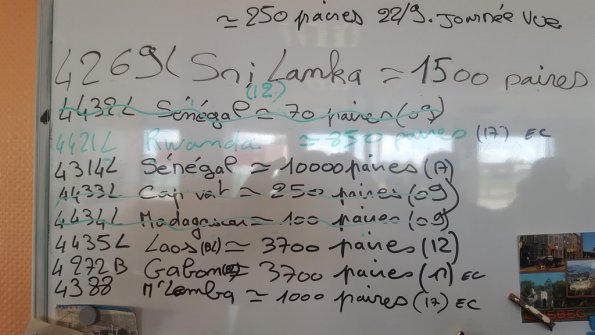 ≃ 250 paires 22/9. Journée vue
4269L Sri Lanka ≃ 1500 paires
(12)
4432L Sénégal ≃ 70 paires (09)
4421L Rwanda ≃ 350 paires (17) EC
4314L Sénégal ≃ 10000 paires (17)
4433L Cap vert ≃ 250 paires (09)
4434L Madagascar ≃ 100 paires (09)
4435L Laos (BL) ≃ 3700 paires (12)
4272B Gabon ≃ 3700 paires (17) EC
4388 M'Lemba ≃ 1000 paires (17) EC